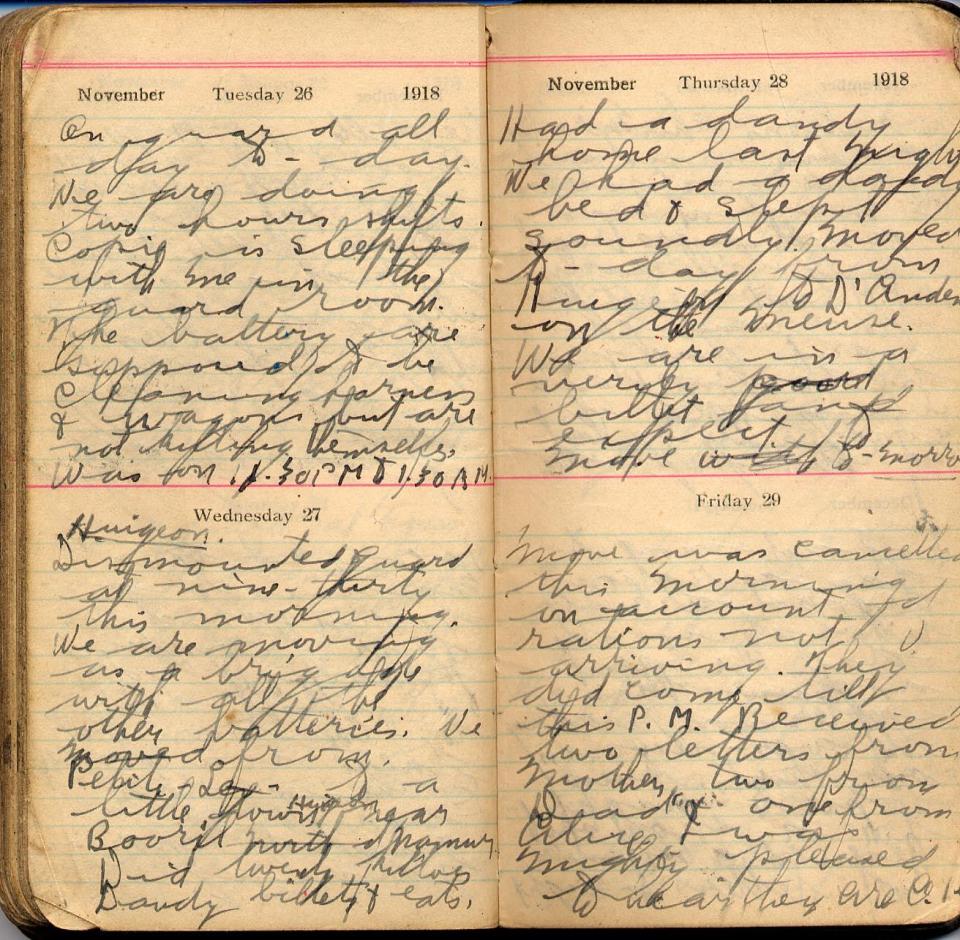 November Tuesday 26 1918
On guard all
day to-day.
We are doing
two hours shifts.
is sleeping
with me in the
guard room.
The battery are
supposed to be
cleaning harness
& wagons but are
not killing themselfs.
Was on 11.30 P M to 1.30 A M.
Wednesday 27
Huigeon.
Dismounted guard
at nine-thirty
this morning.
We are moving
as a brigade
with all the
other batteries. We
moved from
Petit - to a
little town near
north of Namur
Did twenty
Dandy billets & eats.
November Thursday 28 1918
Had a dandy
home last night
We had a dandy
bed & slept
soundly. Moved
to-day from
Huigeon to D'Anden
on the Meuse.
We are in a
very good
billet and
expect to
move to-morro
Friday 29
Move was cancelled
this morning
on account of
rations not
arriving. They
did come till
this P. M. Received
two letters from
Mother, two from
Dead & one from
Alice I was
mighty pleased
to hear they are